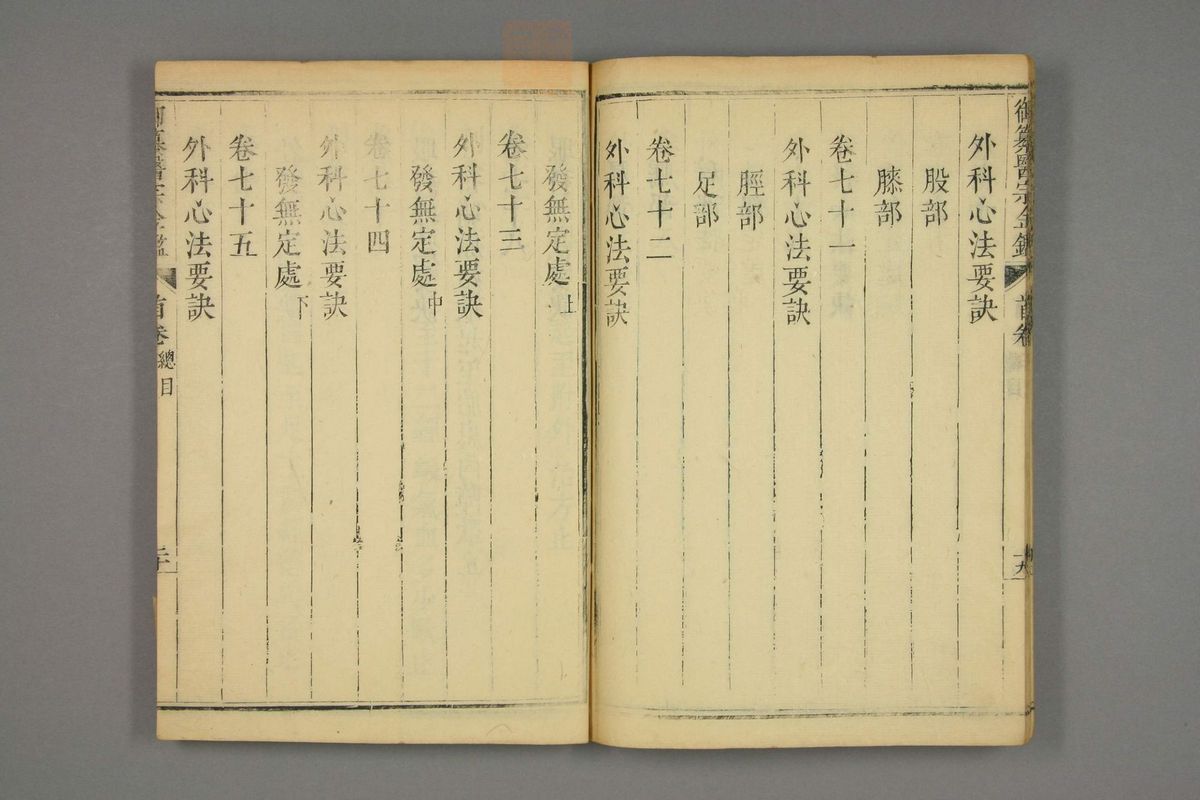 御纂醫宗金鑑 首卷 十九
外科心法要訣
股部
膝部
卷七十一
外科心法要訣
脛部
足部
卷七十二
外科心法要訣
發無定處上
卷七十三
外科心法要訣
發無定處中
卷七十四
外科心法要訣
發無定處下
卷七十五
外科心法要訣
御纂醫宗金鑑 首卷 總目 二十